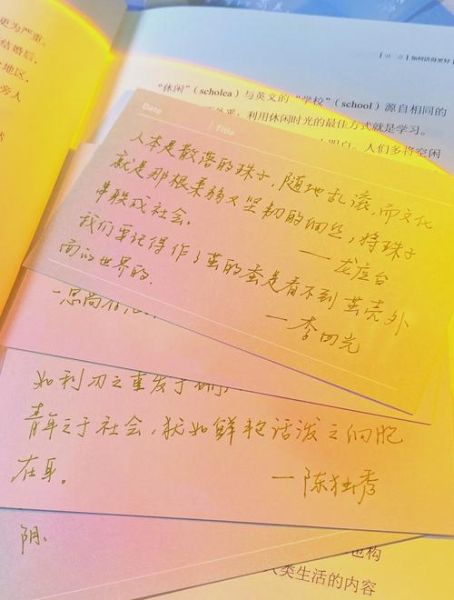 更为严重。
结婚后,
地区,
旁人
如何活得更好
“休闲”(scholea)与英文的“学校”(school)源自相同的
利用休闲时光的最佳方式就是学习。
人们多将空闲
Date Title
人本是散落的珠子,随地乱滚,而文化
就是那根柔弱又坚韧的细丝,将珠子
串联成社会。
——龙应台
我们牢记得作了茧的蚕是看不到茧壳外
面的世界的。
—李四光
如利刃之重发于硎,
青年之于社会,犹如鲜艳活泼之细胞
在身。
—陈独秀
阴、
也构
人类生活的内容